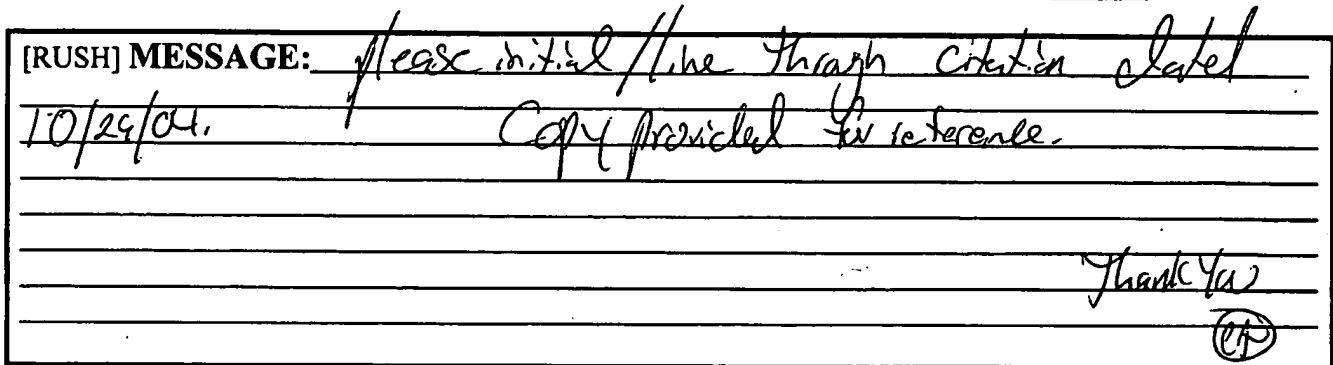 [RUSH] MESSAGE: Please initial/line through citation dated
10/29/04. Copy provided for reference.
Thank You